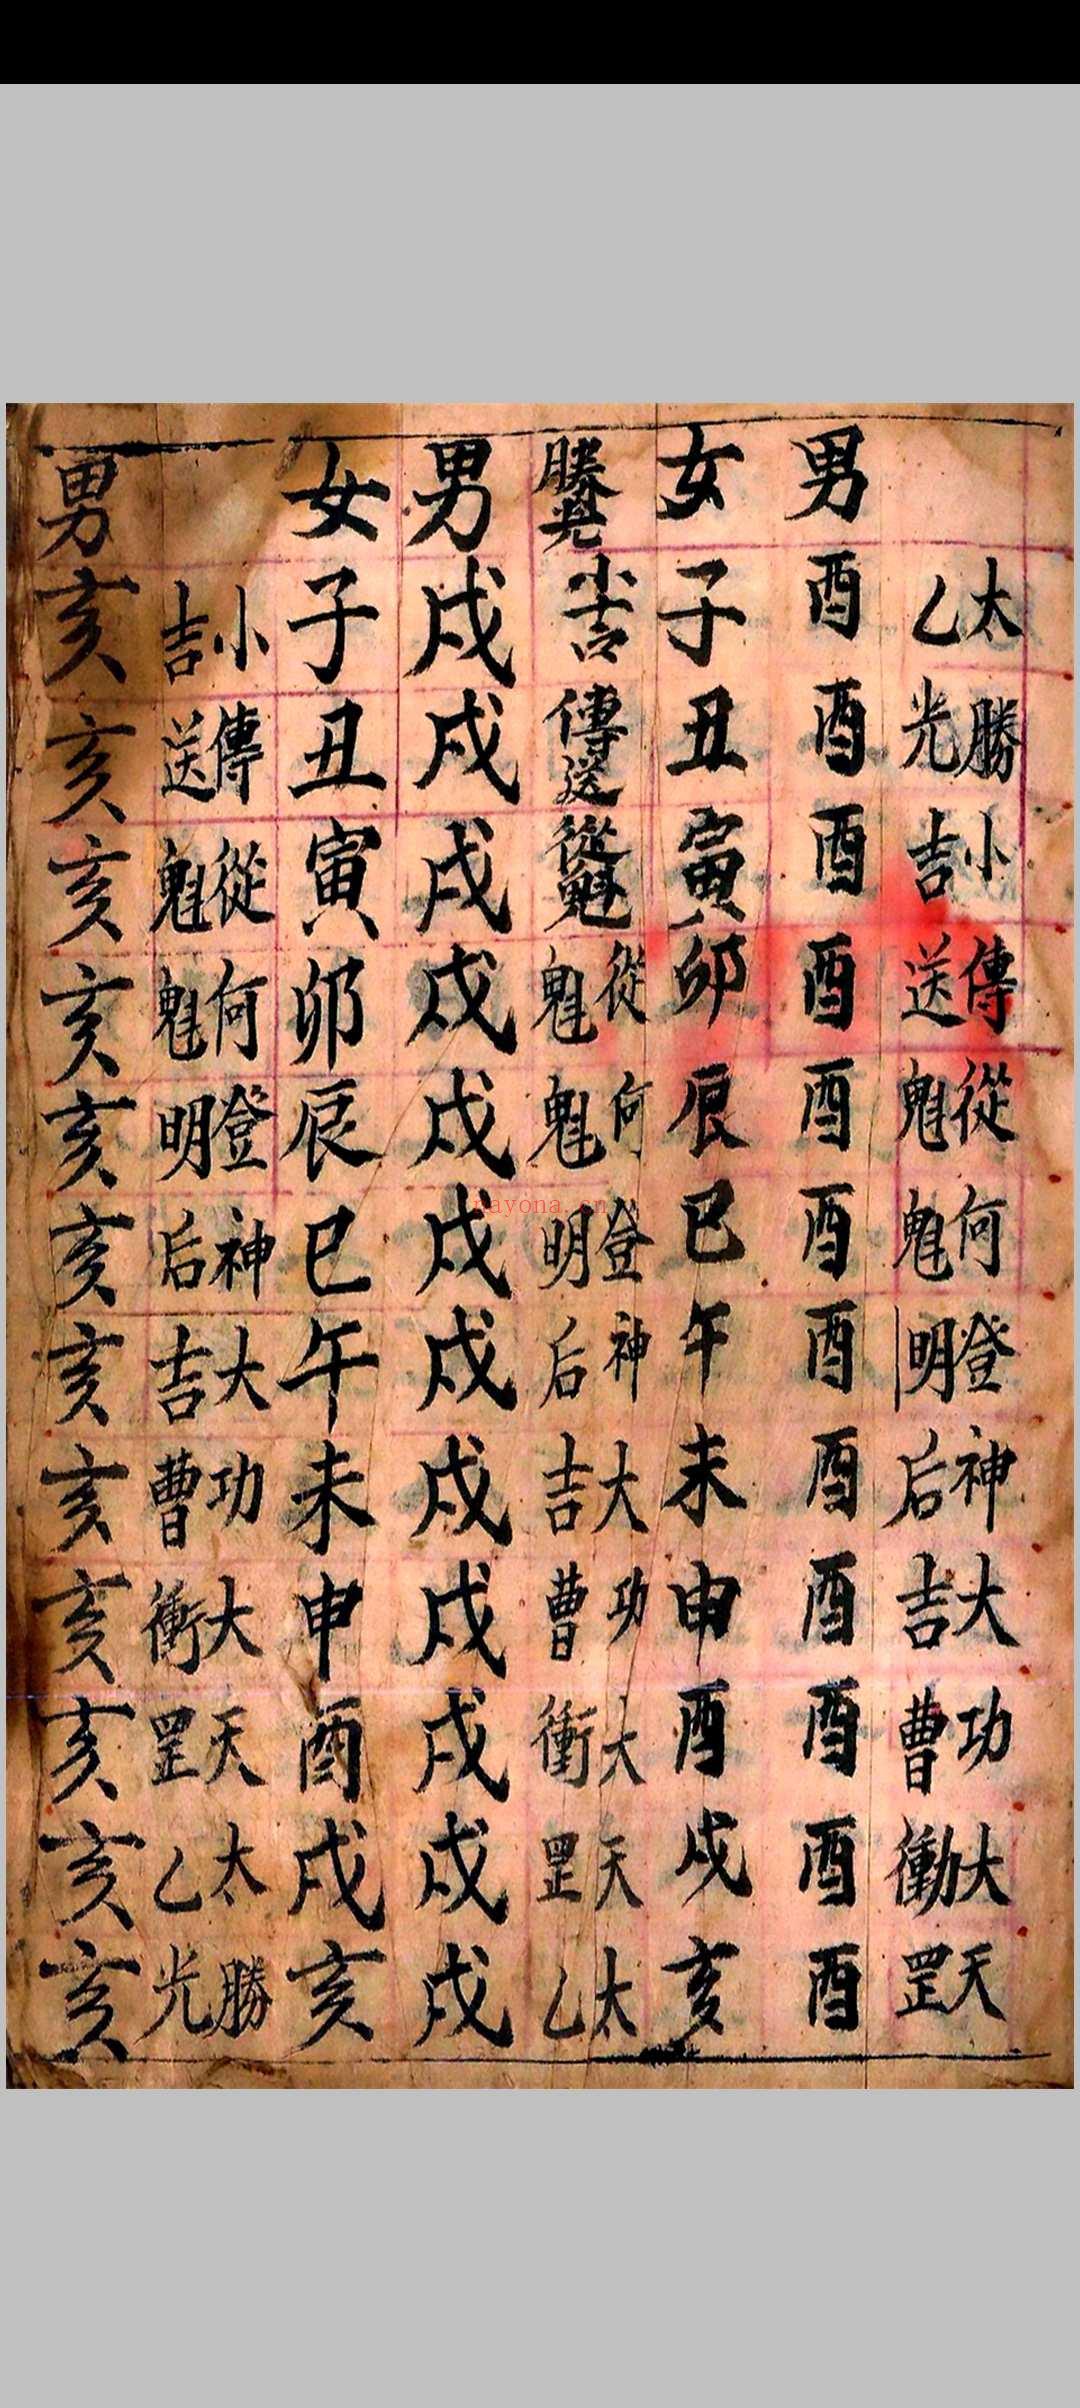 太乙 勝光 小吉 傳送 從魁 何魁 登明 神后 大吉 功曹 大衝 天罡
男 酉 酉 酉 酉 酉 酉 酉 酉 酉 酉 酉 酉
女 子 丑 寅 卯 辰 巳 午 未 申 酉 戌 亥
勝光 小吉 傳送 從魁 從魁 何魁 登明 神后 大吉 功曹 大衝 天罡 太乙
男 戌 戌 戌 戌 戌 戌 戌 戌 戌 戌 戌 戌
女 子 丑 寅 卯 辰 巳 午 未 申 酉 戌 亥
小吉 傳送 從魁 何魁 登明 神后 大吉 功曹 大衝 天罡 太乙 勝光
男 亥 亥 亥 亥 亥 亥 亥 亥 亥 亥 亥 亥
nayona.cn